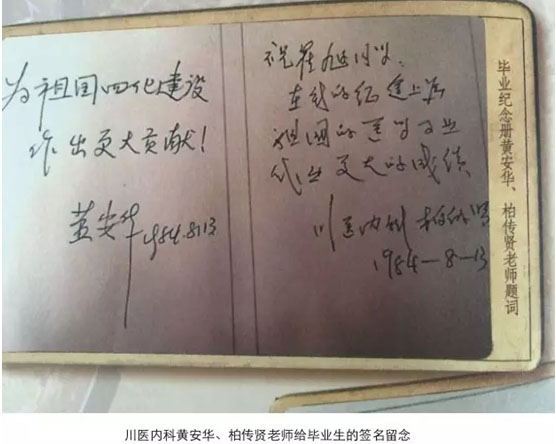 为祖国四化建设
作出更大贡献！
黄安华 1984.8.13
祝崔旭同学：
在新的征途上为
祖国的医学事业
作出更大的成绩
川医内科 柏传贤
1984-8-13
毕业纪念册黄安华、柏传贤老师题词
川医内科黄安华、柏传贤老师给毕业生的签名留念